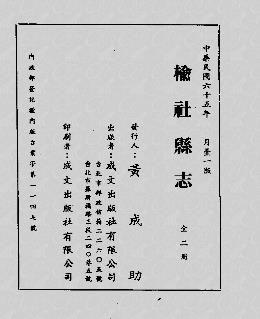 中華民國六十五年　月臺一版
榆社縣志
全二冊
發行人：黃成助
出版者：成文出版社有限公司
台北市郵政信箱二二六〇五號
台北市羅斯福路三段二四〇巷五號
印刷者：成文出版社有限公司
內政部登記證內版台業字第一一四七號